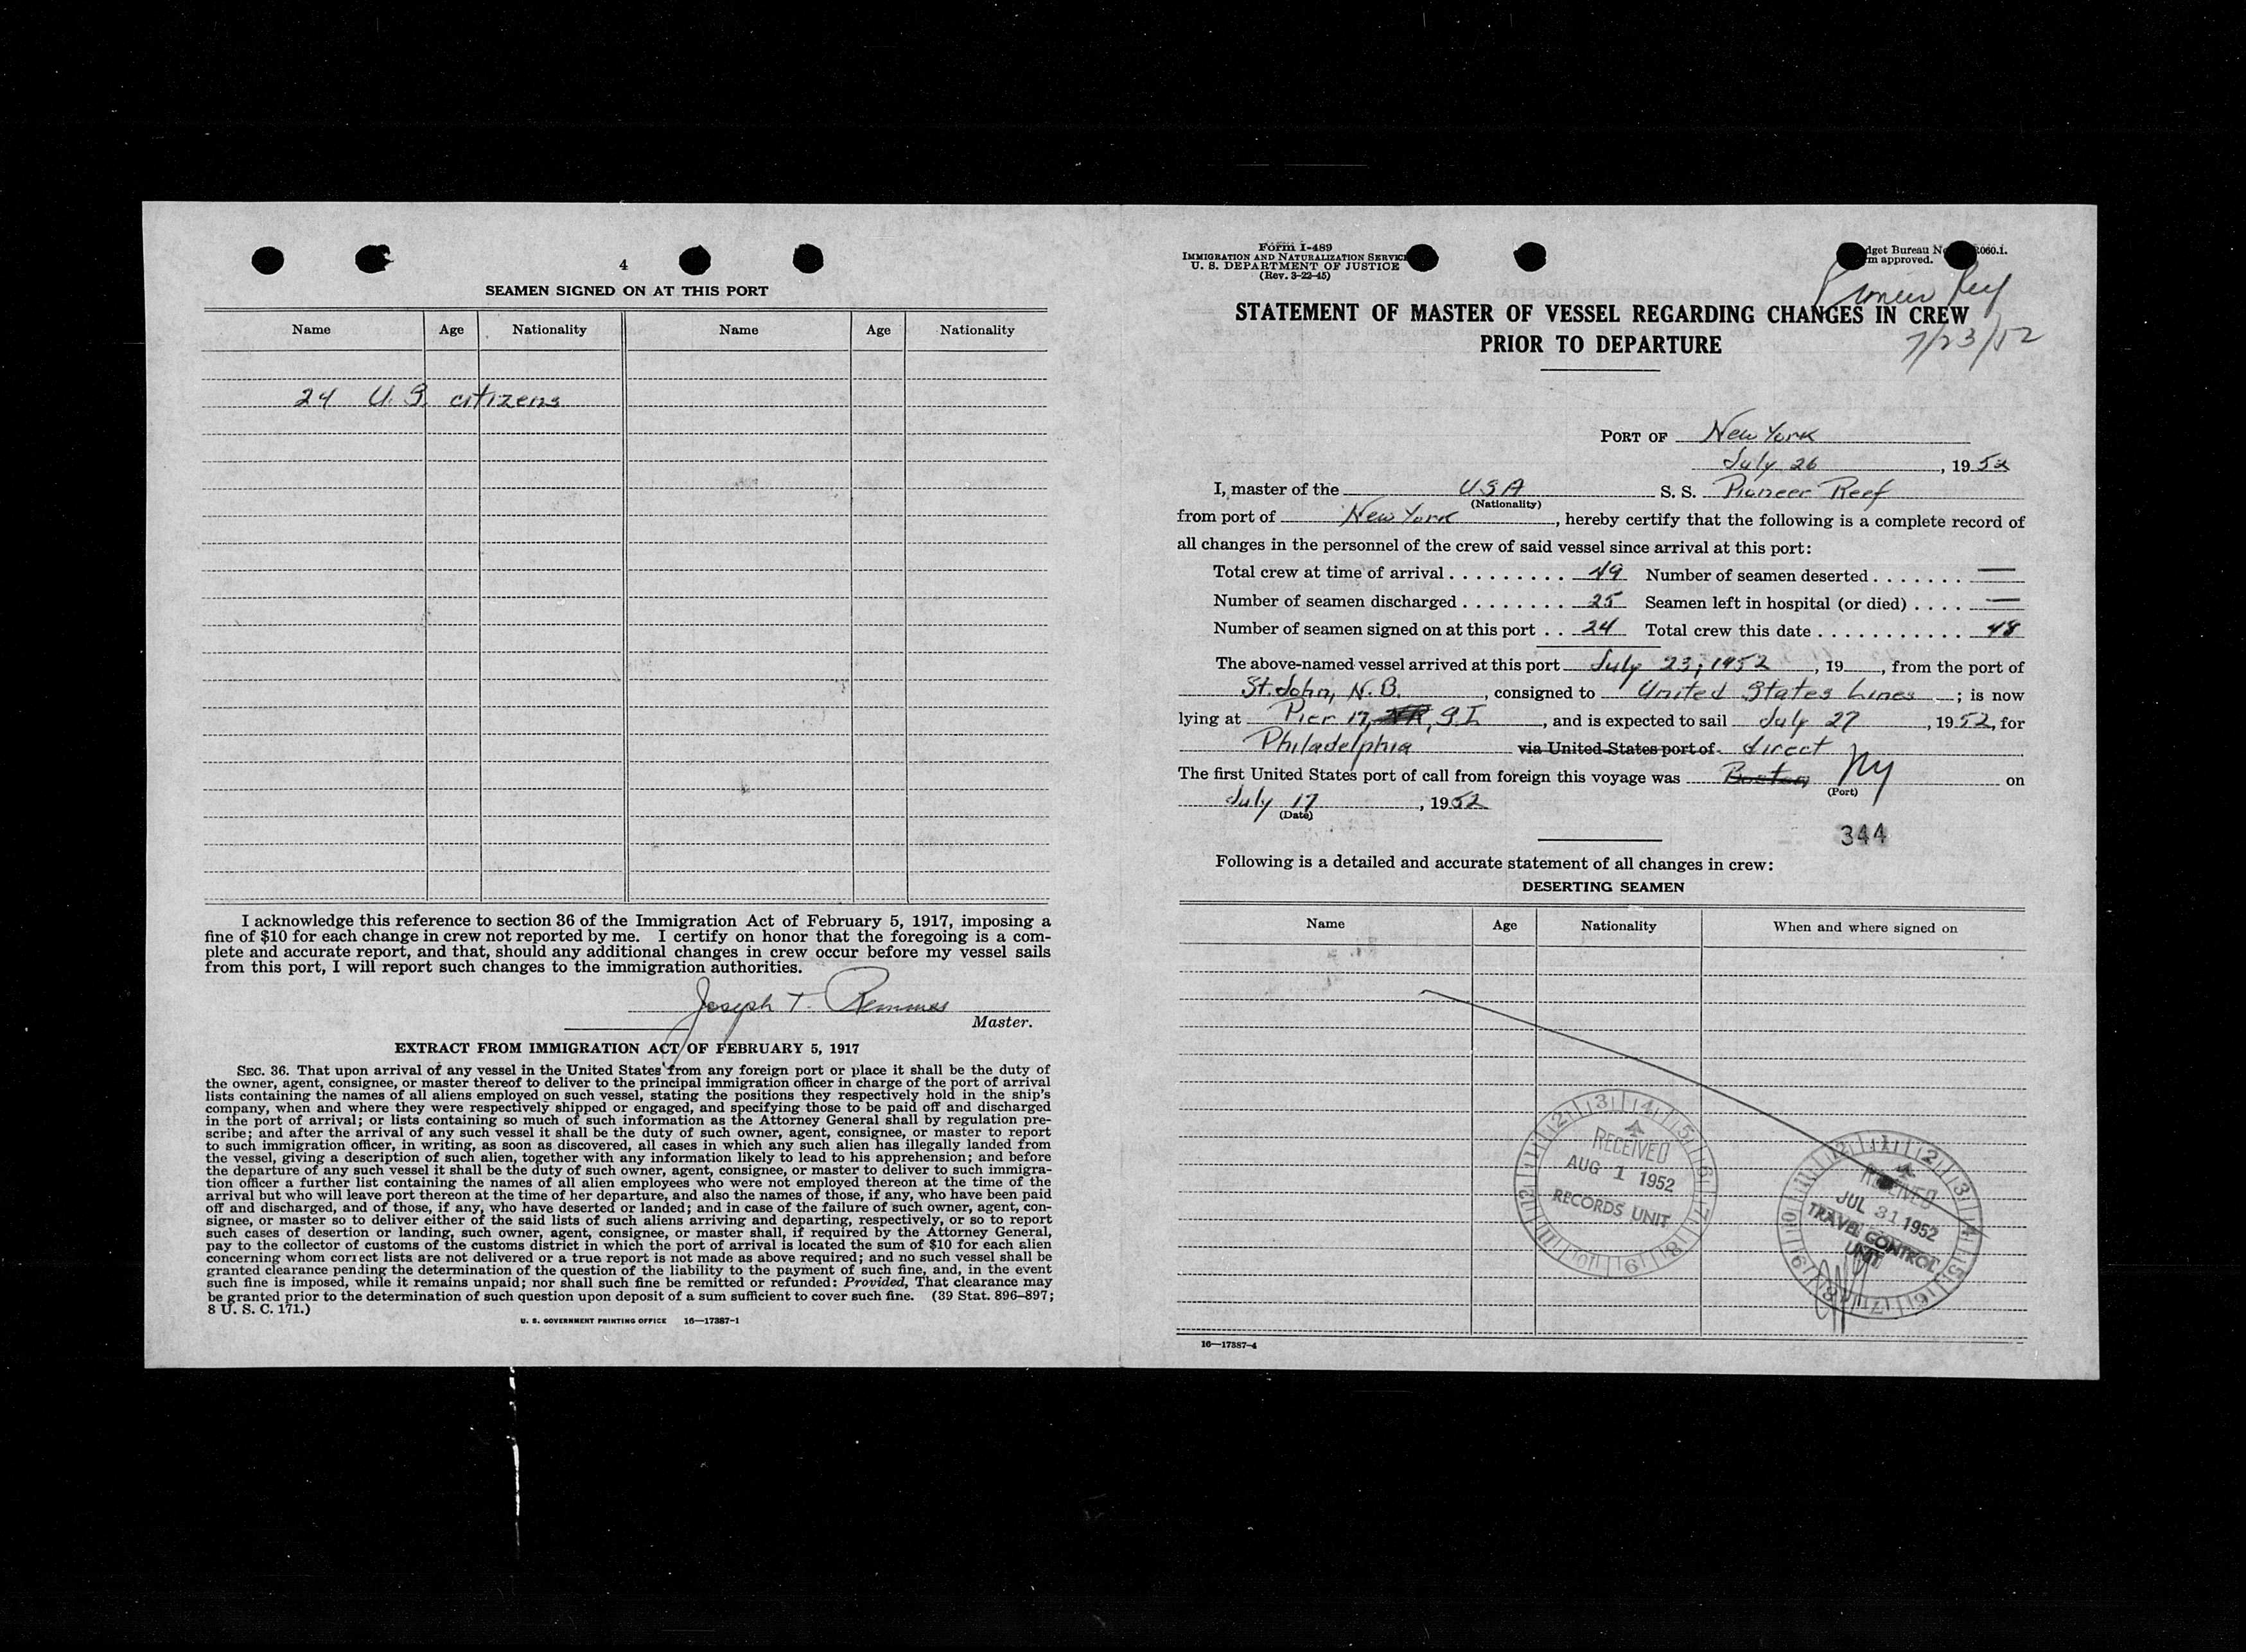 4
SEAMEN SIGNED ON AT THIS PORT
Name Age Nationality Name Age Nationality
24 U.S. citizens
I acknowledge this reference to section 36 of the Immigration Act of February 5, 1917, imposing a
fine of $10 for each change in crew not reported by me. I certify on honor that the foregoing is a com-
plete and accurate report, and that, should any additional changes in crew occur before my vessel sails
from this port, I will report such changes to the immigration authorities.
Joseph T.
Master.
EXTRACT FROM IMMIGRATION ACT OF FEBRUARY 5, 1917
SEC. 36. That upon arrival of any vessel in the United States from any foreign port or place it shall be the duty of
the owner, agent, consignee, or master thereof to deliver to the principal immigration officer in charge of the port of arrival
lists containing the names of all aliens employed on such vessel, stating the positions they respectively hold in the ship's
company, when and where they were respectively shipped or engaged, and specifying those to be paid off and discharged
in the port of arrival; or lists containing so much of such information as the Attorney General shall by regulation pre-
scribe; and after the arrival of any such vessel it shall be the duty of such owner, agent, consignee, or master to report
to such immigration officer, in writing, as soon as discovered, all cases in which any such alien has illegally landed from
the vessel, giving a description of such alien, together with any information likely to lead to his apprehension; and before
the departure of any such vessel it shall be the duty of such owner, agent, consignee, or master to deliver to such immigra-
tion officer a further list containing the names of all alien employees who were not employed thereon at the time of the
arrival but who will leave port thereon at the time of her departure, and also the names of those, if any, who have been paid
off and discharged, and of those, if any, who have deserted or landed; and in case of the failure of such owner, agent, con-
signee, or master so to deliver either of the said lists of such aliens arriving and departing, respectively, or so to report
such cases of desertion or landing, such owner, agent, consignee, or master shall, if required by the Attorney General,
pay to the collector of customs of the customs district in which the port of arrival is located the sum of $10 for each alien
concerning whom correct lists are not delivered or a true report is not made as above required; and no such vessel shall be
granted clearance pending the determination of the question of the liability to the payment of such fine, and, in the event
such fine is imposed, while it remains unpaid; nor shall such fine be remitted or refunded: Provided, That clearance may
be granted prior to the determination of such question upon deposit of a sum sufficient to cover such fine. (39 Stat. 896–897;
8 U. S. C. 171.)
U. S. GOVERNMENT PRINTING OFFICE 16—17387-1
Form I-489
IMMIGRATION AND NATURALIZATION SERVICE
U. S. DEPARTMENT OF JUSTICE
(Rev. 3-22-45)
dget Bureau No. 060.1.
m approved.
Pioneer Reef
7/23/52
STATEMENT OF MASTER OF VESSEL REGARDING CHANGES IN CREW
PRIOR TO DEPARTURE
PORT OF New York
July 26, 1952
I, master of the USA S. S. Pioneer Reef
(Nationality)
from port of New York, hereby certify that the following is a complete record of
all changes in the personnel of the crew of said vessel since arrival at this port:
Total crew at time of arrival . . . . . . . . . 49 Number of seamen deserted . . . . . . . —
Number of seamen discharged . . . . . . . . 25 Seamen left in hospital (or died) . . . . —
Number of seamen signed on at this port . . 24 Total crew this date . . . . . . . . . . . . 48
The above-named vessel arrived at this port July 23, 1952, 19, from the port of
St. John, N.B., consigned to United States Lines; is now
lying at Pier 17, NR, SI, and is expected to sail July 27, 1952, for
Philadelphia via United States port of direct
The first United States port of call from foreign this voyage was Boston NY on
(Port)
July 17, 1952
(Date)
344
Following is a detailed and accurate statement of all changes in crew:
DESERTING SEAMEN
Name Age Nationality When and where signed on
RECEIVED
AUG 1 1952
RECORDS UNIT
RECEIVED
JUL 31 1952
TRAVEL CONTROL
UNIT
16—17387-4